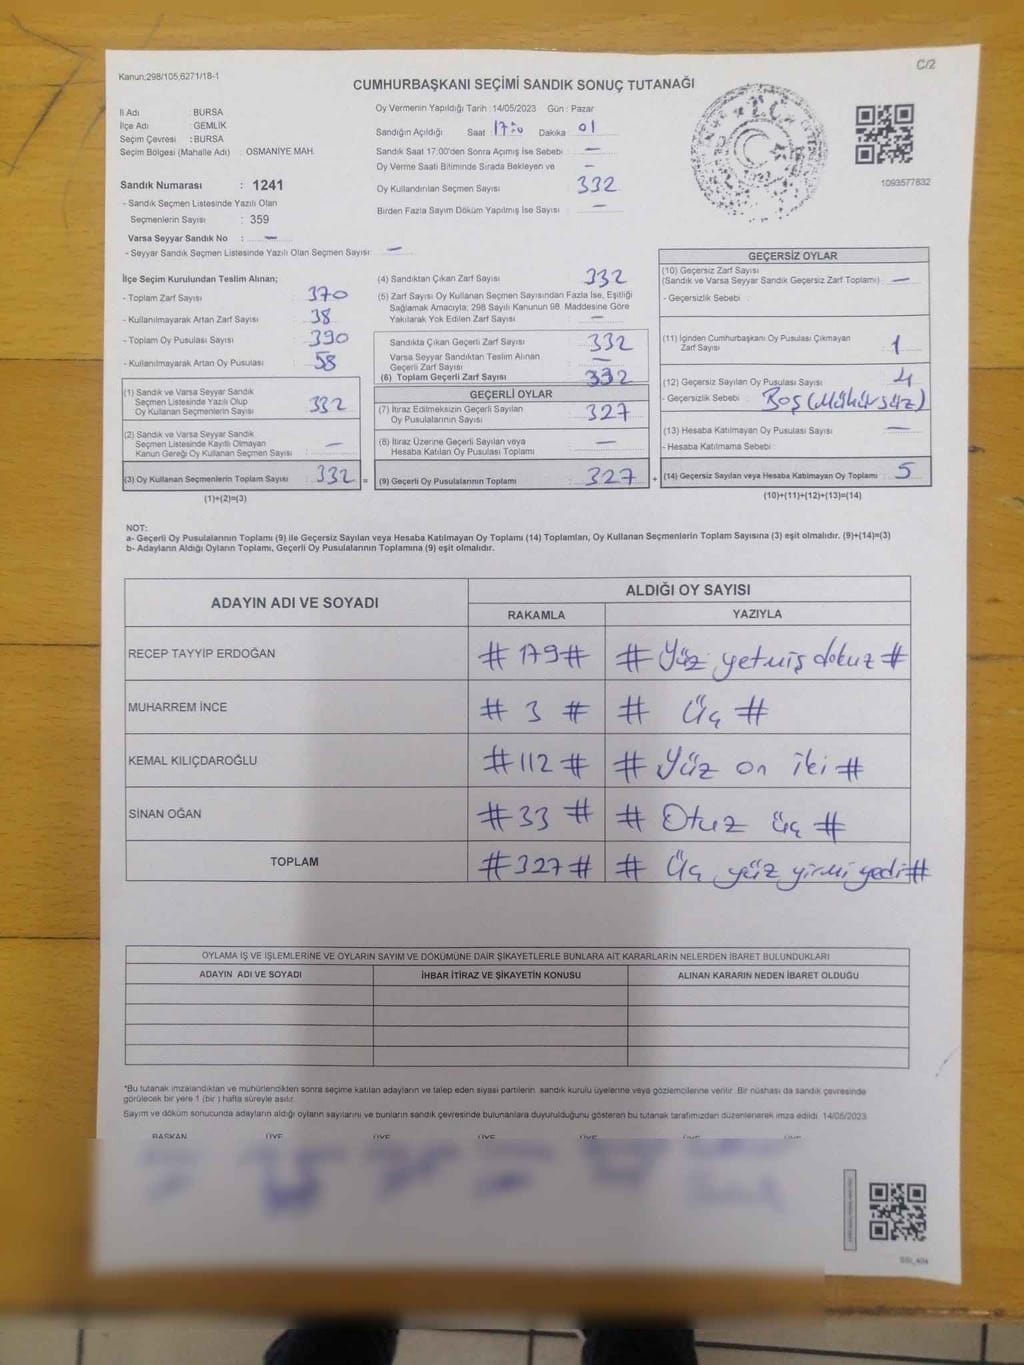 C/2
Kanun;298/105,6271/18-1
CUMHURBAŞKANI SEÇİMİ SANDIK SONUÇ TUTANAĞI
İl Adı : BURSA
İlçe Adı : GEMLİK
Seçim Çevresi : BURSA
Seçim Bölgesi (Mahalle Adı) : OSMANİYE MAH.
Sandık Numarası : 1241
- Sandık Seçmen Listesinde Yazılı Olan
Seçmenlerin Sayısı : 359
Varsa Seyyar Sandık No : -
- Seyyar Sandık Seçmen Listesinde Yazılı Olan Seçmen Sayısı: -
Oy Vermenin Yapıldığı Tarih : 14/05/2023 Gün : Pazar
Sandığın Açıldığı Saat : 17:00 Dakika : 01
Sandık Saat 17:00'den Sonra Açımış İse Sebebi : -
Oy Verme Saati Bitiminde Sırada Bekleyen ve -
Oy Kullandırılan Seçmen Sayısı : 332
Birden Fazla Sayım Döküm Yapılmış İse Sayısı : -
1093577832
İlçe Seçim Kurulundan Teslim Alınan;
- Toplam Zarf Sayısı : 370
- Kullanılmayarak Artan Zarf Sayısı : 38
- Toplam Oy Pusulası Sayısı : 390
- Kullanılmayarak Artan Oy Pusulası : 58
(1) Sandık ve Varsa Seyyar Sandık
Seçmen Listesinde Yazılı Olup
Oy Kullanan Seçmenlerin Sayısı : 332
(2) Sandık ve Varsa Seyyar Sandık
Seçmen Listesinde Kayıtlı Olmayan
Kanun Gereği Oy Kullanan Seçmen Sayısı : -
(3) Oy Kullanan Seçmenlerin Toplam Sayısı : 332 =
(1)+(2)=(3)
(4) Sandıktan Çıkan Zarf Sayısı : 332
(5) Zarf Sayısı Oy Kullanan Seçmen Sayısından Fazla İse, Eşitliği
Sağlamak Amacıyla, 298 Sayılı Kanunun 98. Maddesine Göre
Yakılarak Yok Edilen Zarf Sayısı : -
Sandıkta Çıkan Geçerli Zarf Sayısı : 332
Varsa Seyyar Sandıktan Teslim Alınan
Geçerli Zarf Sayısı : -
(6) Toplam Geçerli Zarf Sayısı : 332
GEÇERLİ OYLAR
(7) İtiraz Edilmeksizin Geçerli Sayılan
Oy Pusulalarının Sayısı : 327
(8) İtiraz Üzerine Geçerli Sayılan veya
Hesaba Katılan Oy Pusulası Toplamı : -
(9) Geçerli Oy Pusulalarının Toplamı : 327 +
GEÇERSİZ OYLAR
(10) Geçersiz Zarf Sayısı
(Sandık ve Varsa Seyyar Sandık Geçersiz Zarf Toplamı) : -
- Geçersizlik Sebebi :
(11) İçinden Cumhurbaşkanı Oy Pusulası Çıkmayan
Zarf Sayısı : 1
(12) Geçersiz Sayılan Oy Pusulası Sayısı : 4
- Geçersizlik Sebebi : Boş (Mühürsüz)
(13) Hesaba Katılmayan Oy Pusulası Sayısı : -
- Hesaba Katılmama Sebebi :
(14) Geçersiz Sayılan veya Hesaba Katılmayan Oy Toplamı : 5
(10)+(11)+(12)+(13)=(14)
NOT:
a- Geçerli Oy Pusulalarının Toplamı (9) ile Geçersiz Sayılan veya Hesaba Katılmayan Oy Toplamı (14) Toplamları, Oy Kullanan Seçmenlerin Toplam Sayısına (3) eşit olmalıdır. (9)+(14)=(3)
b- Adayların Aldığı Oyların Toplamı, Geçerli Oy Pusulalarının Toplamına (9) eşit olmalıdır.
ADAYIN ADI VE SOYADI ALDIĞI OY SAYISI
RAKAMLA YAZIYLA
RECEP TAYYİP ERDOĞAN #179# #Yüz yetmiş dokuz#
MUHARREM İNCE # 3 # # Üç #
KEMAL KILIÇDAROĞLU #112# # Yüz on iki #
SİNAN OĞAN #33 # # Otuz üç #
TOPLAM #327# # Üç yüz yirmi yedi#
OYLAMA İŞ VE İŞLEMLERİNE VE OYLARIN SAYIM VE DÖKÜMÜNE DAİR ŞİKAYETLERLE BUNLARA AİT KARARLARIN NELERDEN İBARET BULUNDUKLARI
ADAYIN ADI VE SOYADI İHBAR İTİRAZ VE ŞİKAYETİN KONUSU ALINAN KARARIN NEDEN İBARET OLDUĞU
*Bu tutanak imzalandıktan ve mühürlendikten sonra seçime katılan adayların ve talep eden siyasi partilerin sandık kurulu üyelerine veya gözlemcilerine verilir. Bir nüshası da sandık çevresinde
görülecek bir yere 1 (bir ) hafta süreyle asılır.
Sayım ve döküm sonucunda adayların aldığı oyların sayılarını ve bunların sandık çevresinde bulunanlara duyurulduğunu gösteren bu tutanak tarafımızdan düzenlenerek imza edildi. 14/05/2023
BAŞKAN ÜYE ÜYE ÜYE ÜYE ÜYE ÜYE